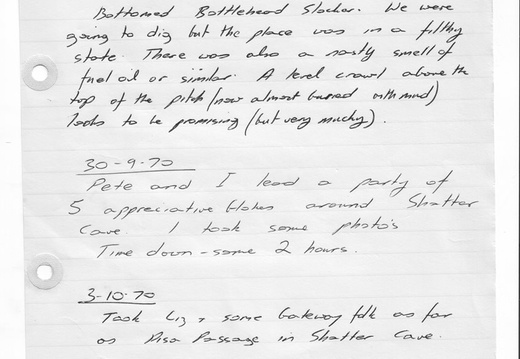 Bottomed Bottlehead Slocker. We were
going to dig but the place was in a filthy
state. There was also a nasty smell of
fuel oil or similar. A level crawl above the
top of the pitch (now almost buried with mud)
looks to be promising (but very mucky).
30-9-70
Pete and I lead a party of
5 appreciative blokes around Shatter
Cave. I took some photo's
Time down - some 2 hours.
3-10-70
Took Liz + some Gateway folk as far
as Pisa Passage in Shatter Cave.